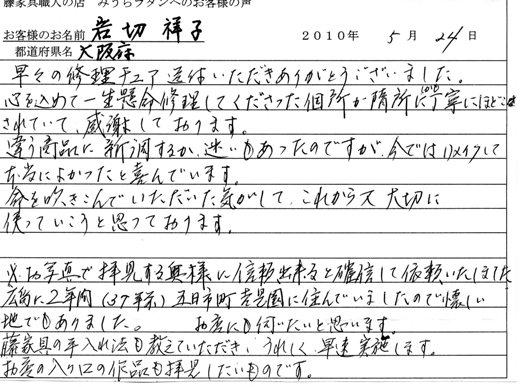 藤家具職人の店 みうらラタンへのお客様の声
お客様のお名前 岩切 祥子 2010年 5月 24日
都道府県名 大阪府
早々の修理チェア送付いただきありがとうございました。
心を込めて一生懸命修理してくださった個所が随所に丁寧にほどこ
されていて、感謝しております。
違う商品に新調するか、迷いもあったのですが、今ではリメイクして
本当によかったと喜んでいます。
命を吹きこんでいただいた気がして、これから又 大切に
使っていこうと思っております。
お写真で拝見する奥様に信頼出来ると確信して依頼いたしました
広島に2年間(37年前)五日市町 楽々園に住んでいましたので懐しい
地でもありました。 お店にも伺いたいと思います。
藤家具の手入れ法も教えていただき、うれしく、早速実施します。
お店の入り口の作品も拝見したいものです。